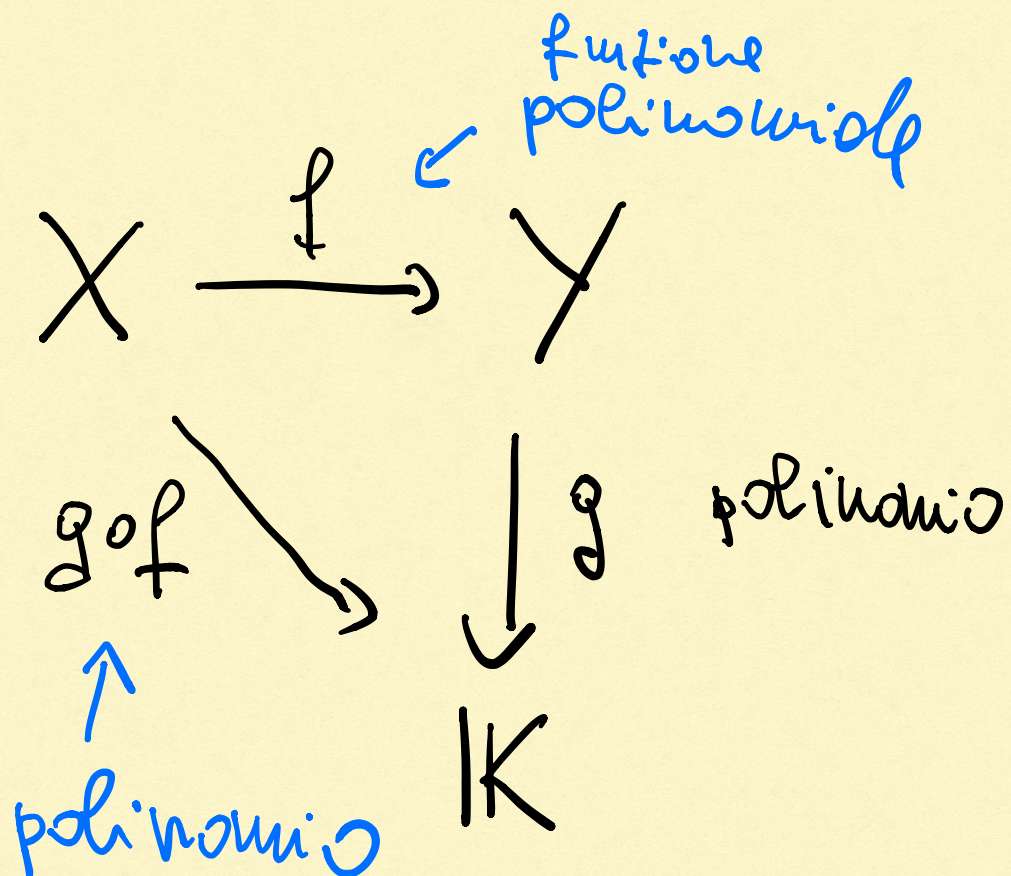 funzione
polinomiale
f
X
Y
g∘f
g
polinomio
𝕂
polinomio